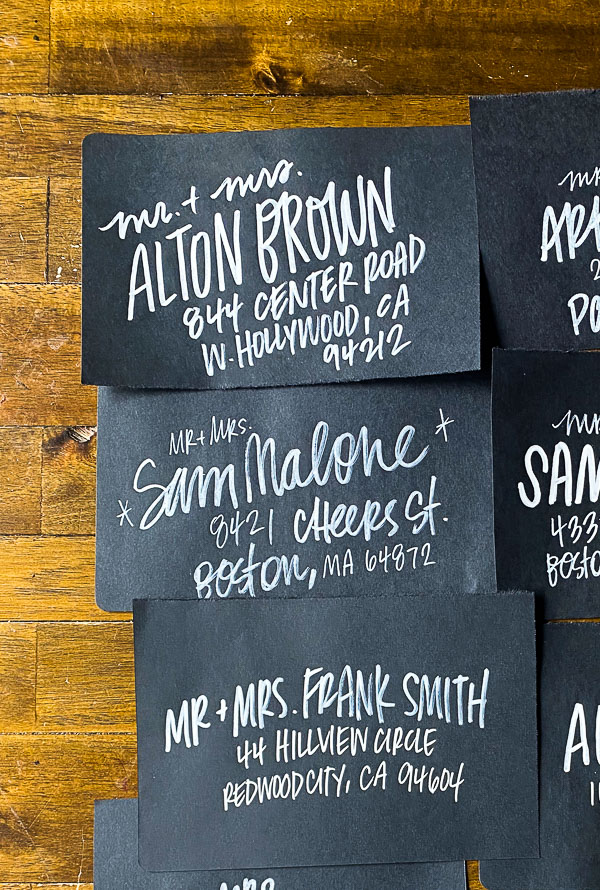 mr. + mrs.
ALTON BROWN
844 CENTER ROAD
W. HOLLYWOOD, CA
94212
MR + MRS.
Sam Malone
8421 CHEERS St.
BOSTON, MA 64872
MR + MRS. FRANK SMITH
44 HILLVIEW CIRCLE
REDWOOD CITY, CA 94604
MRS.
SAM
433
BOSTO